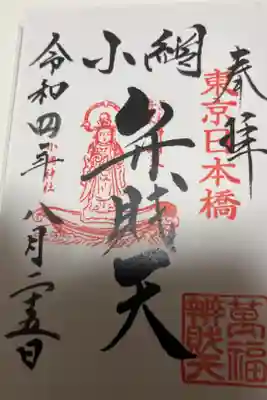 奉拝
東京日本橋
小網
弁財天
小網神社
萬福
辨財天
令和四年八月二十五日